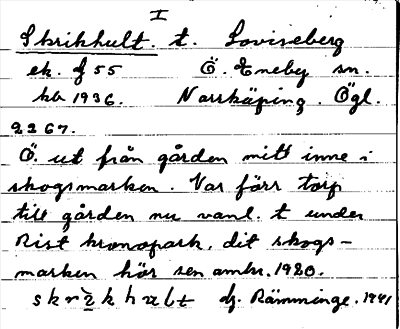 I
Skrikhult. t. Loviseberg
ek. f 55 Ö. Eneby sn.
kb 1936. Norrköping. Ögl.
2267.
Ö. ut från gården mitt inne i
skogsmarken. Var förr torp
till gården nu vanl. t under
Rist kronopark, dit skogs-
marken hör sen omkr. 1920.
dj. Rämminge. 1941